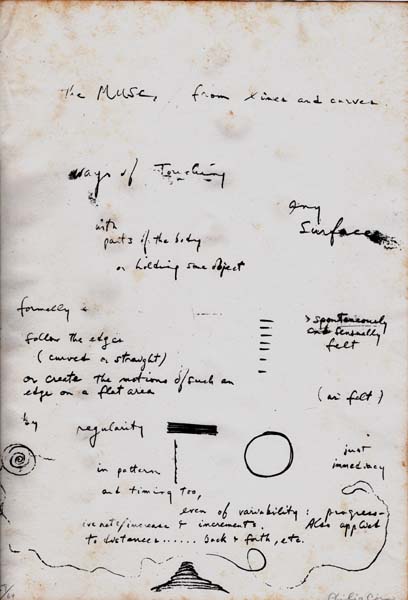 The MUSE, from Lines and curves
ways of Touching
any
Surface
with
parts of the body
or holding some object
formally :
> spontaneously
and sensually
felt
follow the edges
(curved or straight)
or create the motions of such an
edge on a flat area
(as felt)
by regularity
just
immediacy
in pattern
and timing too,
even of variability : progress-
ive rate/increase & increments. Also applied
to distances...... back & forth, etc.